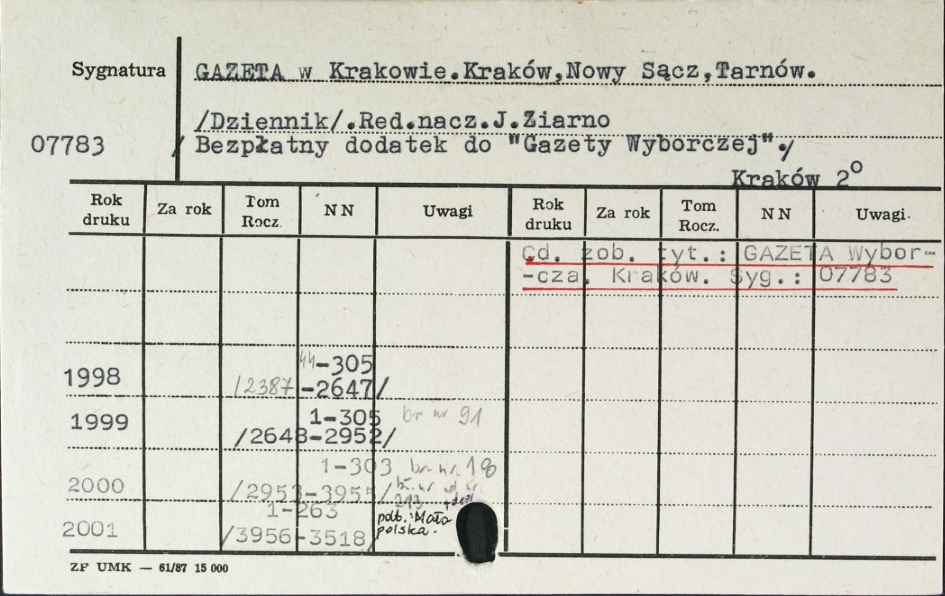 Sygnatura
GAZETA w Krakowie.Kraków,Nowy Sącz,Tarnów.
/Dziennik/.Red.nacz.J.Ziarno
07783
/ Bezpłatny dodatek do "Gazety Wyborczej"./
Kraków 2º
Rok druku Za rok Tom Rocz. NN Uwagi Rok druku Za rok Tom Rocz. NN Uwagi.
Cd. zob. tyt.: GAZETA Wybor-
-cza. Kraków. Syg.: 07783
44-305
1998 /2387-2647/
1-305 br nr 91
1999 /2648-2952/
1-303 br. nr. 18
2000 /2953-3955/ br. nr
213
1-263 podt. Mało
2001 /3956-3518/ polska.
ZP UMK — 61/87 15 000